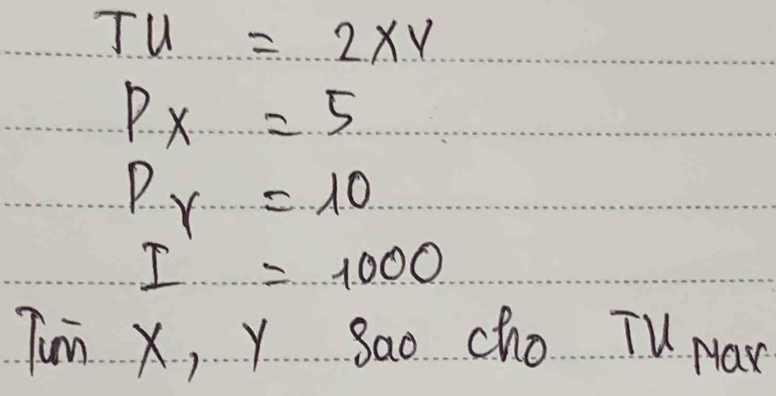 TU = 2XY
PX = 5
PY = 10
I = 1000
Tìm X, Y sao cho TU Max